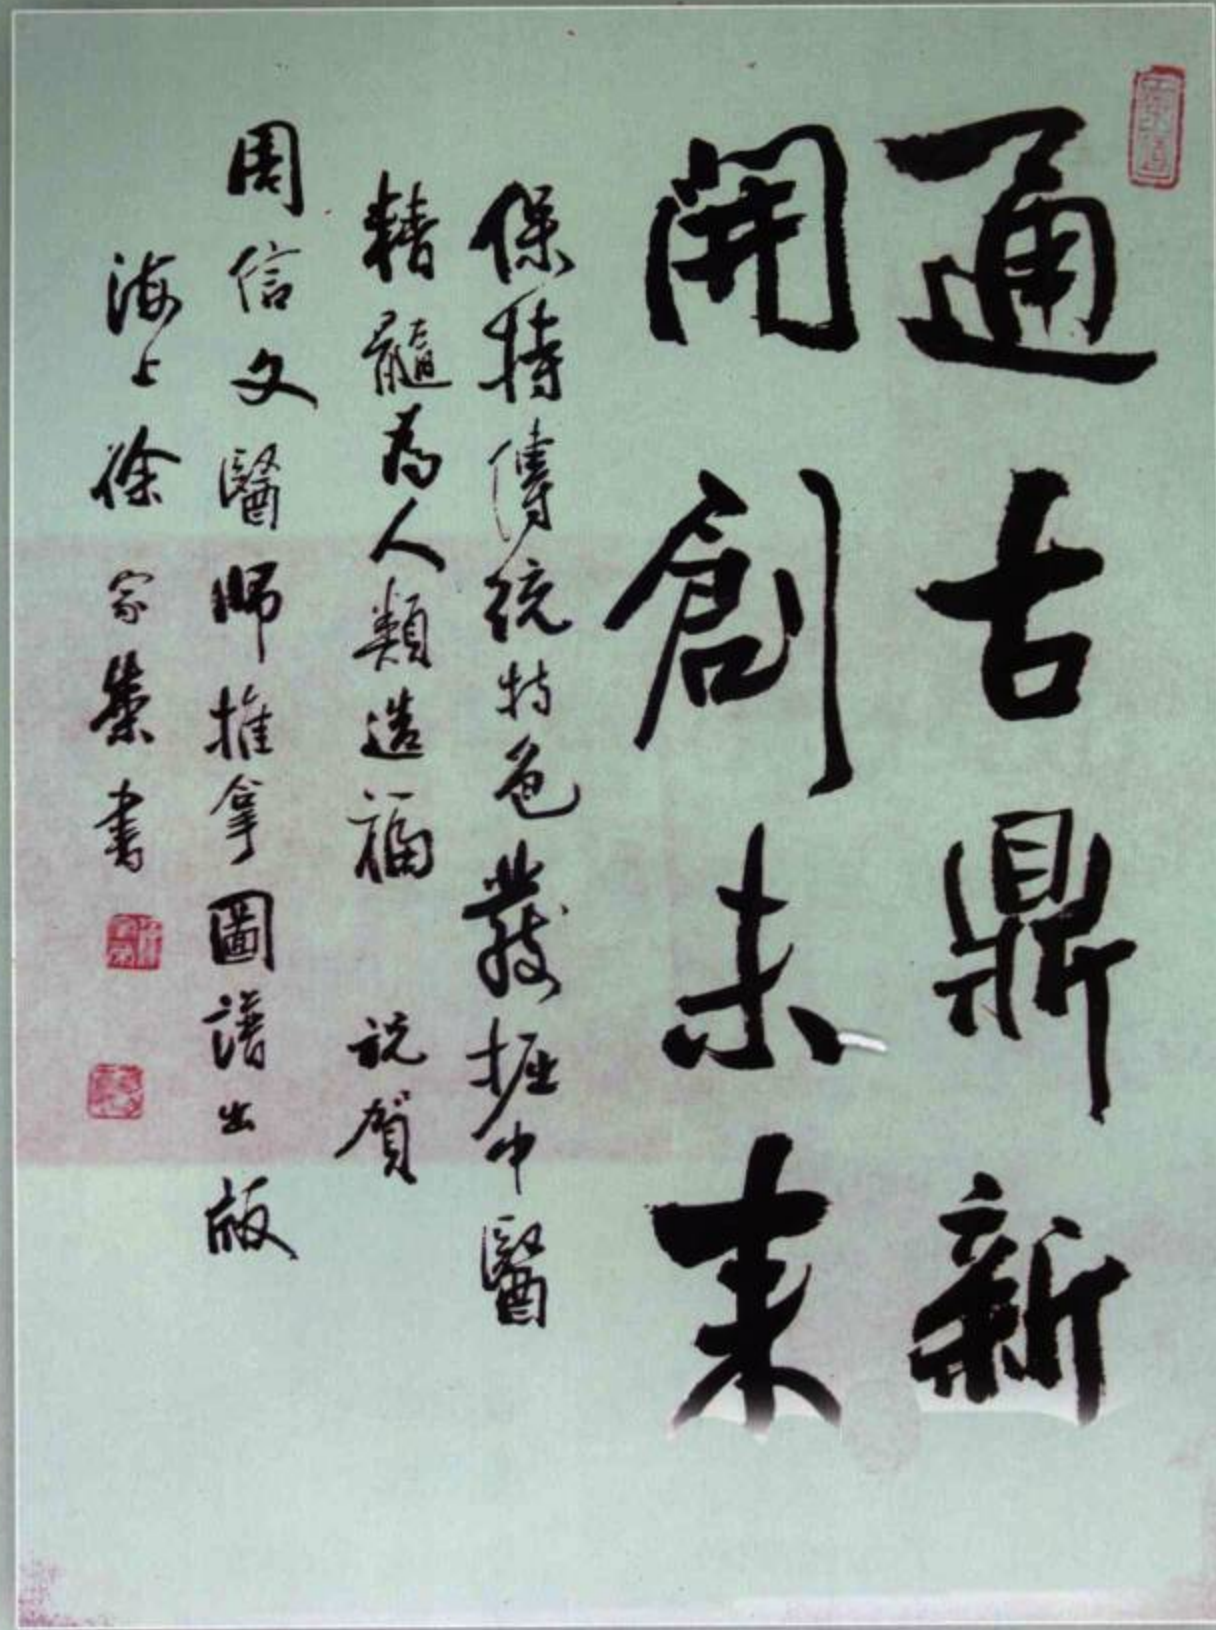 通古鼎新
開創未来
保持傳統特色發掘中醫
精髓為人類造福 祝賀
周信文醫師推拿圖譜出版
海上徐家榮書